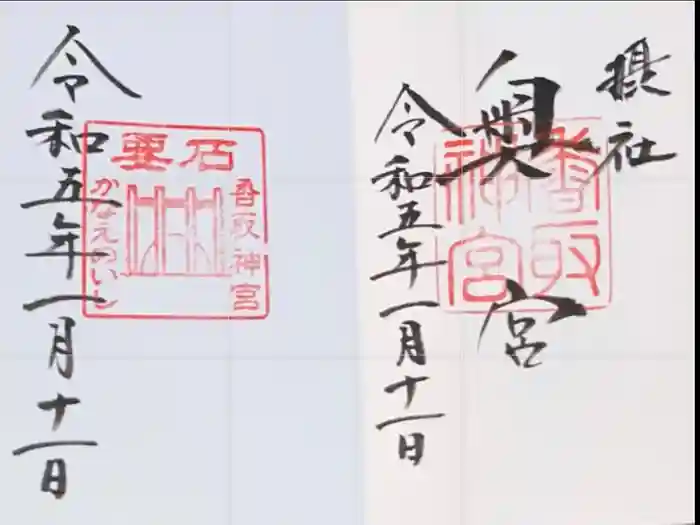 摂社
奥宮
香取
神宮
令和五年一月十一日
要石
香取神宮
令和五年一月十一日